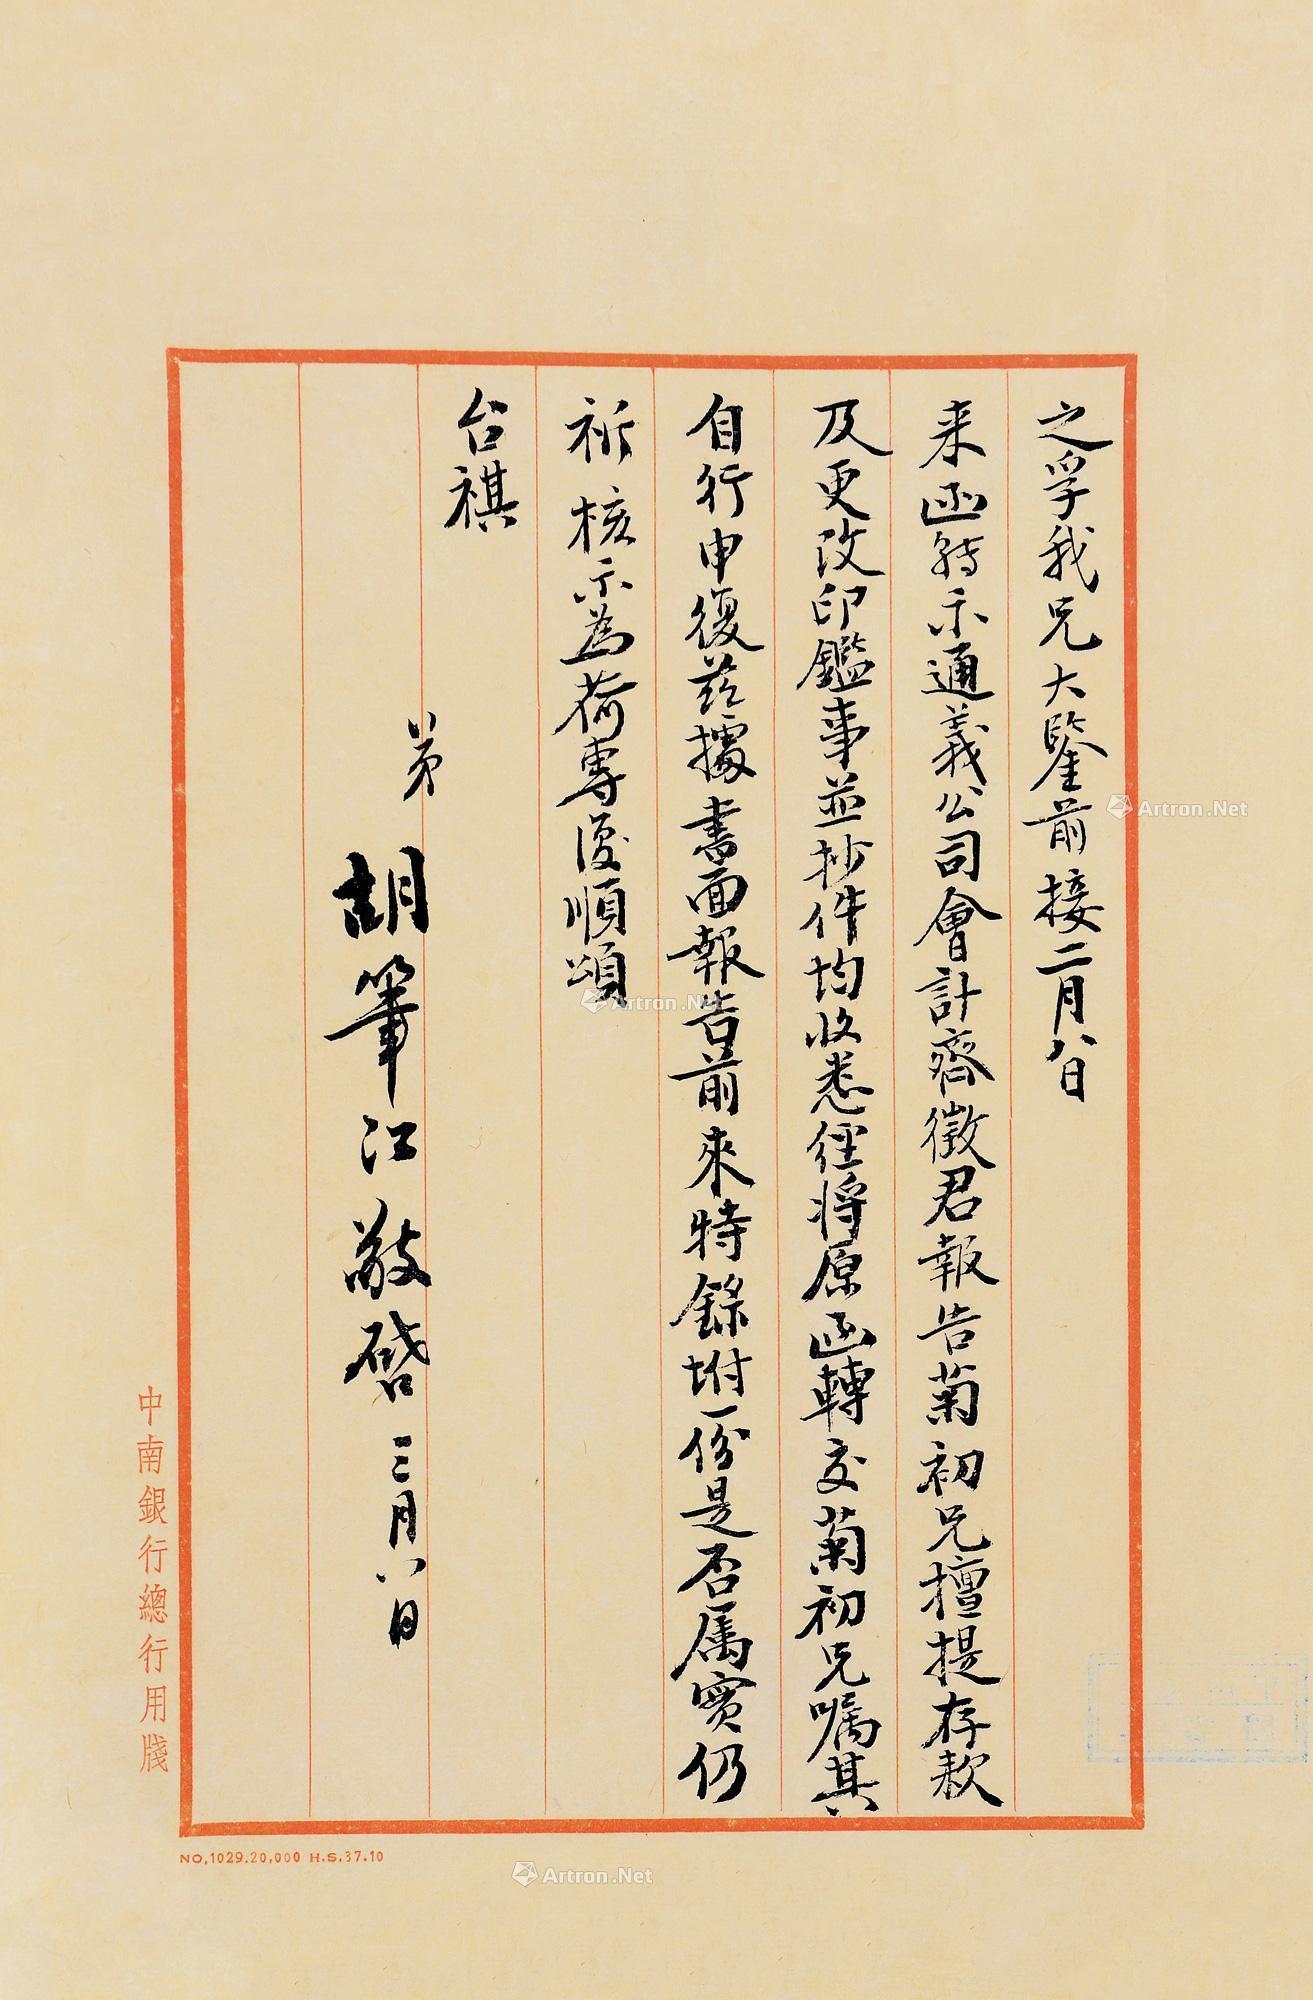 之孚我兄大鑒前接二月八日
来函轉示通義公司會計齊徵君報告菊初兄擅提存款
及更改印鑑事並抄件均收悉經將原函轉交菊初兄嘱其
自行申復茲據書面報告前來特錄坿一份是否属實仍
祈核示為荷專復順頌
台祺
弟
胡筆江敬啓 三月八日
中南銀行總行用牋
NO.1029.20,000 H.S.37.10
Artron.Net
Artron.Net
Artron.Net